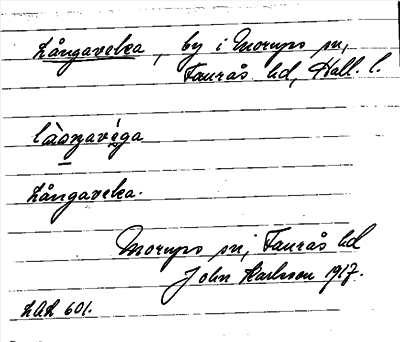 Långaveka, by i Morups sn,
Faurås hd, Hall. l.
Långaveka.
Morups sn, Faurås hd
John Karlsson 1917.
601.